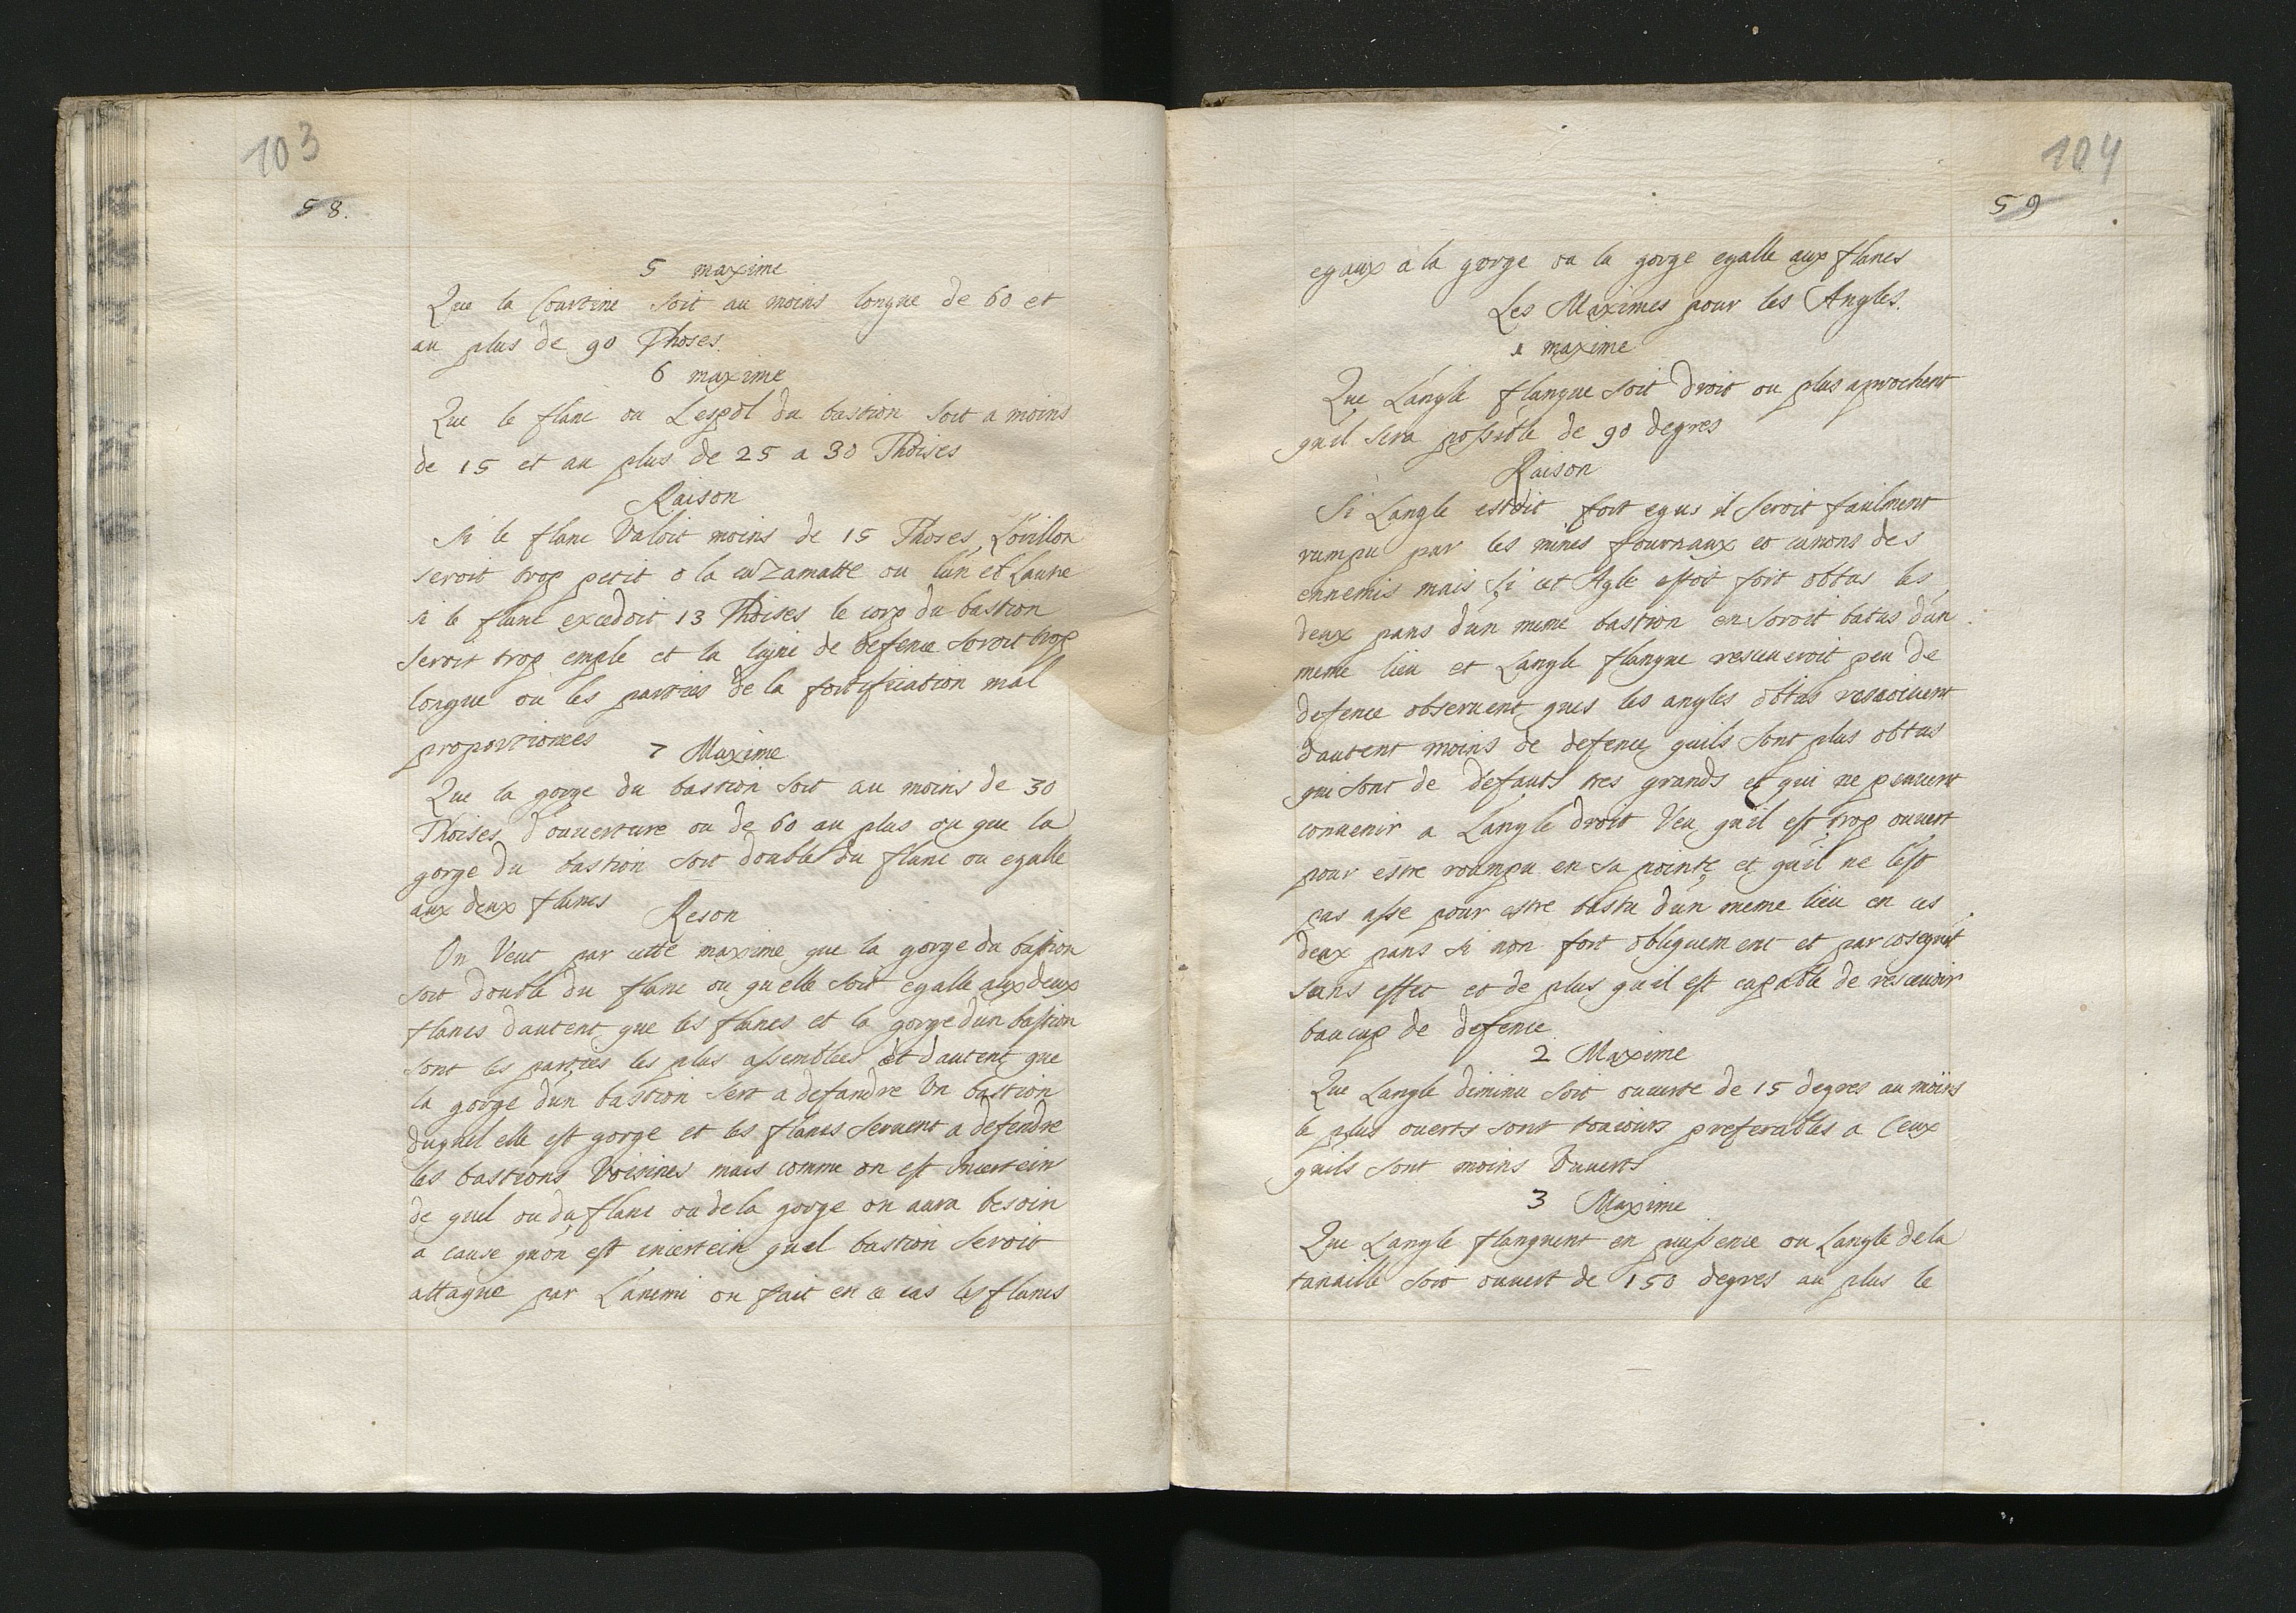 103
58.
5 maxime
Que la Courtine soit au moins longue de 60 et
au plus de 90 Thoses.
6 maxime
Que le flanc ou Lespol du bastion soit a moins
de 15 et au plus de 25 a 30 Thoises
Raison
Si le flanc Valoit moins de 15 Thoses Lorillon
seroit trop petit o la cazamatte ou lun et Lautre
si le flanc excedoit 13 Thoises le corp du bastion
seroit trop emple et la ligne de defence seroit trop
longue ou les parties de la fortification mal
proportionees
7 Maxime
Que la gorge du bastion soit au moins de 30
Thoises d'ouuerture ou de 60 au plus ou que la
gorge du bastion soit double du flanc ou egalle
aux deux flancs
Reson
On Veut par cette maxime que la gorge du bastion
soit double du flanc ou qu elle soit egalle aux deux
flancs dautent que les flancs et la gorge dun bastion
sont les parties les plus assemblees et dautent que
la gorge d'un bastion sert a defandre Un bastion
duquel elle est gorge et les flancs seruent a defendre
les bastions Voisines mais comme on est incertein
de quel ou du flanc ou de la gorge on aura besoin
a cause quon est incertein quel bastion seroit
attaque par Lanemi on fait en ce cas les flancs
104
59
egaux a la gorge ou la gorge egalle aux flancs
Les Maximes pour les Angles.
1 maxime
Que Langle flanque soit droit ou plus aprochent
quil sera possible de 90 degres
Raison
Si Langle estoit fort egus il seroit facilment
rumpu par les mines fournaux et canons des
ennemis mais si cet Agle estoit fort obtus les
deux pans dun meme bastion en seroit batus dun
meme lieu et Langle flanque resceueroit peu de
defence obseruent ques les angles obtus resoiuent
dautent moins de defence quils sont plus obtus
qui sont de defauts tres grands et qui ne peuuent
conuenir a Langle droit Veu quil est trop ouuert
pour estre roumpu en sa pointe et quil ne lest
pas asse pour estre bastu dun meme lieu en ces
deux pans si non fort obliquem ent et par cosequt
sans effet et de plus quil est capable de resceuoir
baucup de defence
2 Maxime
Que Langle diminu soit ouuerte de 15 degres au moins
le plus ouerts sont touiours preferables a Ceux
quils sont moins Ouuerts
3 Maxime
Que Langle flanquent en puissence ou Langle de la
tanaille soit ouuert de 150 degres au plus le